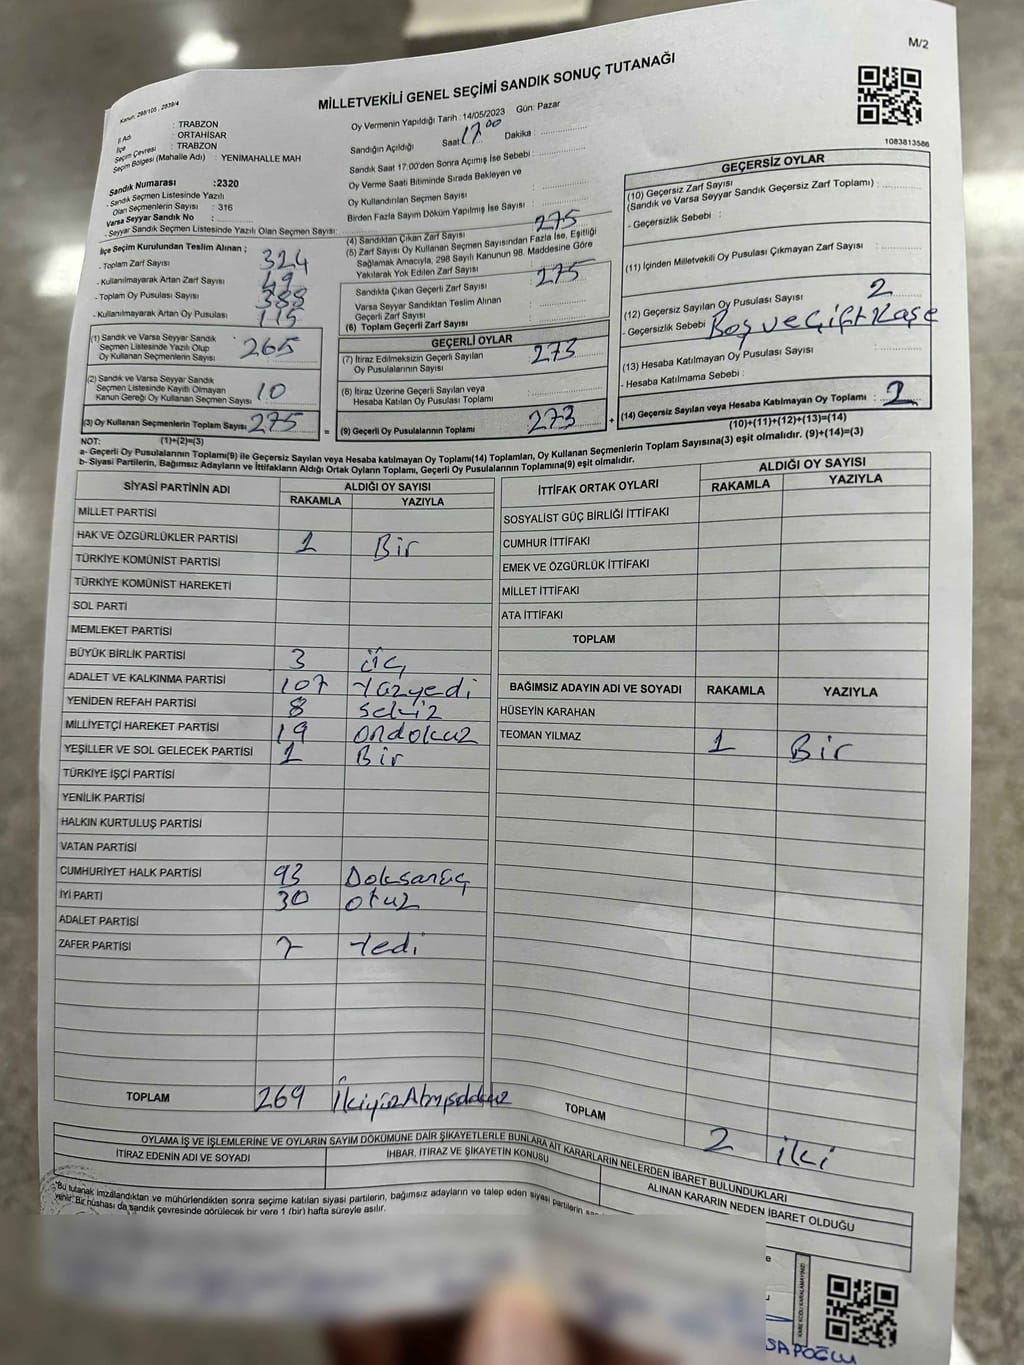 M/2
Kanun: 298/105 , 2839/4
MİLLETVEKİLİ GENEL SEÇİMİ SANDIK SONUÇ TUTANAĞI
1083813586
İl Adı : TRABZON
İlçe : ORTAHİSAR
Seçim Çevresi : TRABZON
Seçim Bölgesi (Mahalle Adı) : YENİMAHALLE MAH
Sandık Numarası :2320
- Sandık Seçmen Listesinde Yazılı
Olan Seçmenlerin Sayısı : 316
Varsa Seyyar Sandık No :
- Seyyar Sandık Seçmen Listesinde Yazılı Olan Seçmen Sayısı:
Oy Vermenin Yapıldığı Tarih : 14/05/2023 Gün: Pazar
Sandığın Açıldığı Saat: 17.00 Dakika :
Sandık Saat 17:00'den Sonra Açımış İse Sebebi :
Oy Verme Saati Bitiminde Sırada Bekleyen ve
Oy Kullandırılan Seçmen Sayısı :
Birden Fazla Sayım Döküm Yapılmış İse Sayısı :
İlçe Seçim Kurulundan Teslim Alınan ;
- Toplam Zarf Sayısı 324
- Kullanılmayarak Artan Zarf Sayısı 49
- Toplam Oy Pusulası Sayısı 388
- Kullanılmayarak Artan Oy Pusulası 115
(1) Sandık ve Varsa Seyyar Sandık
Seçmen Listesinde Yazılı Olup
Oy Kullanan Seçmenlerin Sayısı : 265
(2) Sandık ve Varsa Seyyar Sandık
Seçmen Listesinde Kayıtlı Olmayan
Kanun Gereği Oy Kullanan Seçmen Sayısı : 10
(3) Oy Kullanan Seçmenlerin Toplam Sayısı : 275
(4) Sandıktan Çıkan Zarf Sayısı : 275
(5) Zarf Sayısı Oy Kullanan Seçmen Sayısından Fazla İse, Eşitliği
Sağlamak Amacıyla, 298 Sayılı Kanunun 98. Maddesine Göre
Yakılarak Yok Edilen Zarf Sayısı :
Sandıkta Çıkan Geçerli Zarf Sayısı : 275
Varsa Seyyar Sandıktan Teslim Alınan
Geçerli Zarf Sayısı :
(6) Toplam Geçerli Zarf Sayısı
GEÇERLİ OYLAR
(7) İtiraz Edilmeksizin Geçerli Sayılan
Oy Pusulalarının Sayısı : 273
(8) İtiraz Üzerine Geçerli Sayılan veya
Hesaba Katılan Oy Pusulası Toplamı :
(9) Geçerli Oy Pusulalarının Toplamı : 273
GEÇERSİZ OYLAR
(10) Geçersiz Zarf Sayısı
(Sandık ve Varsa Seyyar Sandık Geçersiz Zarf Toplamı) :
- Geçersizlik Sebebi :
(11) İçinden Milletvekili Oy Pusulası Çıkmayan Zarf Sayısı :
(12) Geçersiz Sayılan Oy Pusulası Sayısı : 2
- Geçersizlik Sebebi : Boş ve Çift Kaşe
(13) Hesaba Katılmayan Oy Pusulası Sayısı :
- Hesaba Katılmama Sebebi :
(14) Geçersiz Sayılan veya Hesaba Katılmayan Oy Toplamı : 2
(10)+(11)+(12)+(13)=(14)
NOT: (1)+(2)=(3)
a- Geçerli Oy Pusulalarının Toplamı(9) ile Geçersiz Sayılan veya Hesaba katılmayan Oy Toplamı(14) Toplamları, Oy Kullanan Seçmenlerin Toplam Sayısına(3) eşit olmalıdır. (9)+(14)=(3)
b- Siyasi Partilerin, Bağımsız Adayların ve İttifakların Aldığı Ortak Oyların Toplamı, Geçerli Oy Pusulalarının Toplamına(9) eşit olmalıdır.
SİYASİ PARTİNİN ADI ALDIĞI OY SAYISI
RAKAMLA YAZIYLA
MİLLET PARTİSİ
HAK VE ÖZGÜRLÜKLER PARTİSİ 1 Bir
TÜRKİYE KOMÜNİST PARTİSİ
TÜRKİYE KOMÜNİST HAREKETİ
SOL PARTİ
MEMLEKET PARTİSİ
BÜYÜK BİRLİK PARTİSİ 3 üç
ADALET VE KALKINMA PARTİSİ 107 Yüzyedi
YENİDEN REFAH PARTİSİ 8 Sekiz
MİLLİYETÇİ HAREKET PARTİSİ 19 ondokuz
YEŞİLLER VE SOL GELECEK PARTİSİ 1 Bir
TÜRKİYE İŞÇİ PARTİSİ
YENİLİK PARTİSİ
HALKIN KURTULUŞ PARTİSİ
VATAN PARTİSİ
CUMHURİYET HALK PARTİSİ 93 Doksanüç
İYİ PARTİ 30 otuz
ADALET PARTİSİ
ZAFER PARTİSİ 7 Yedi
TOPLAM 269 İkiyüzAtmışdokuz
İTTİFAK ORTAK OYLARI ALDIĞI OY SAYISI
RAKAMLA YAZIYLA
SOSYALİST GÜÇ BİRLİĞİ İTTİFAKI
CUMHUR İTTİFAKI
EMEK VE ÖZGÜRLÜK İTTİFAKI
MİLLET İTTİFAKI
ATA İTTİFAKI
TOPLAM
BAĞIMSIZ ADAYIN ADI VE SOYADI RAKAMLA YAZIYLA
HÜSEYİN KARAHAN
TEOMAN YILMAZ 1 Bir
TOPLAM 2 iki
OYLAMA İŞ VE İŞLEMLERİNE VE OYLARIN SAYIM DÖKÜMÜNE DAİR ŞİKAYETLERLE BUNLARA AİT KARARLARIN NELERDEN İBARET BULUNDUKLARI
İTİRAZ EDENİN ADI VE SOYADI İHBAR, İTİRAZ VE ŞİKAYETİN KONUSU ALINAN KARARIN NEDEN İBARET OLDUĞU
*Bu tutanak imzalandıktan ve mühürlendikten sonra seçime katılan siyasi partilerin, bağımsız adayların ve talep eden siyasi partilerin
verilir. Bir nüshası da sandık çevresinde görülecek bir yere 1 (bir) hafta süreyle asılır.
KARE KODU KARALAMAYINIZ!
SAPOĞLU